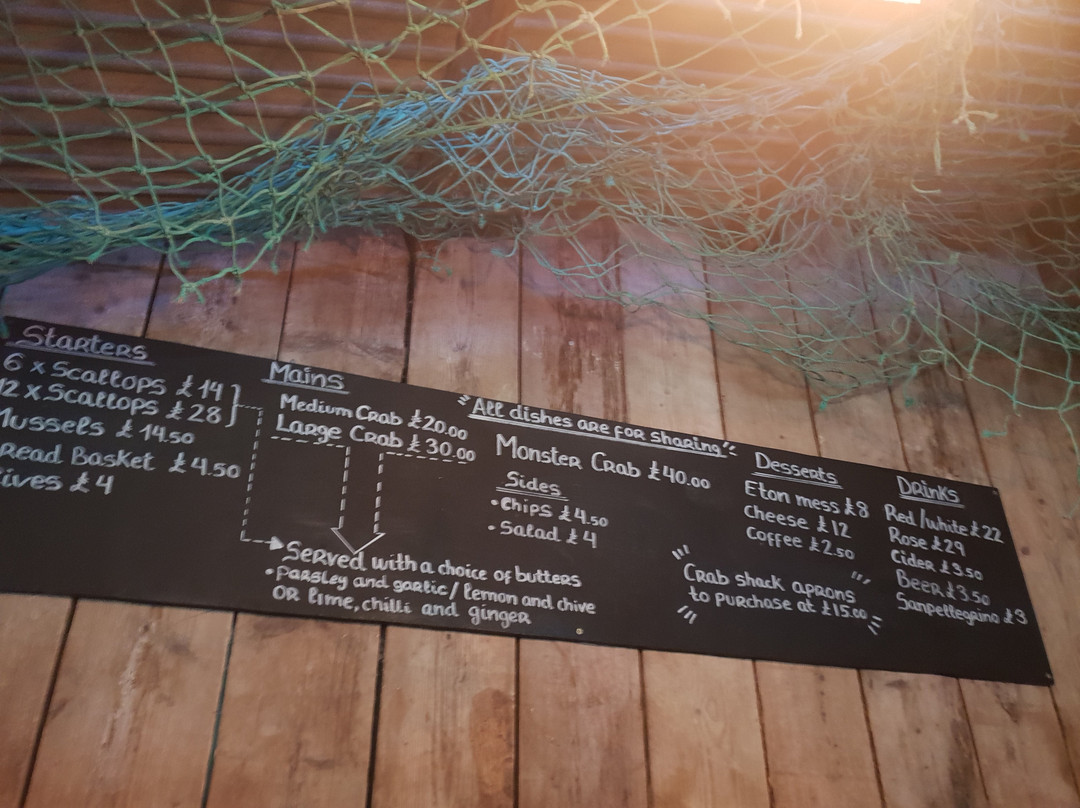 Starters
6 x Scallops £14
12 x Scallops £28
Mussels £14.50
read Basket £4.50
ives £4
Mains
Medium Crab £20.00
Large Crab £30.00
Served with a choice of butters
• Parsley and garlic / lemon and chive
or lime, chilli and ginger
"All dishes are for sharing"
Monster Crab £40.00
Sides
• Chips £4.50
• Salad £4
Desserts
Eton mess £8
Cheese £12
Coffee £2.50
Crab shack aprons
to purchase at £15.00
Drinks
Red/white £22
Rose £29
Cider £3.50
Beer £3.50
Sanpellegrino £3